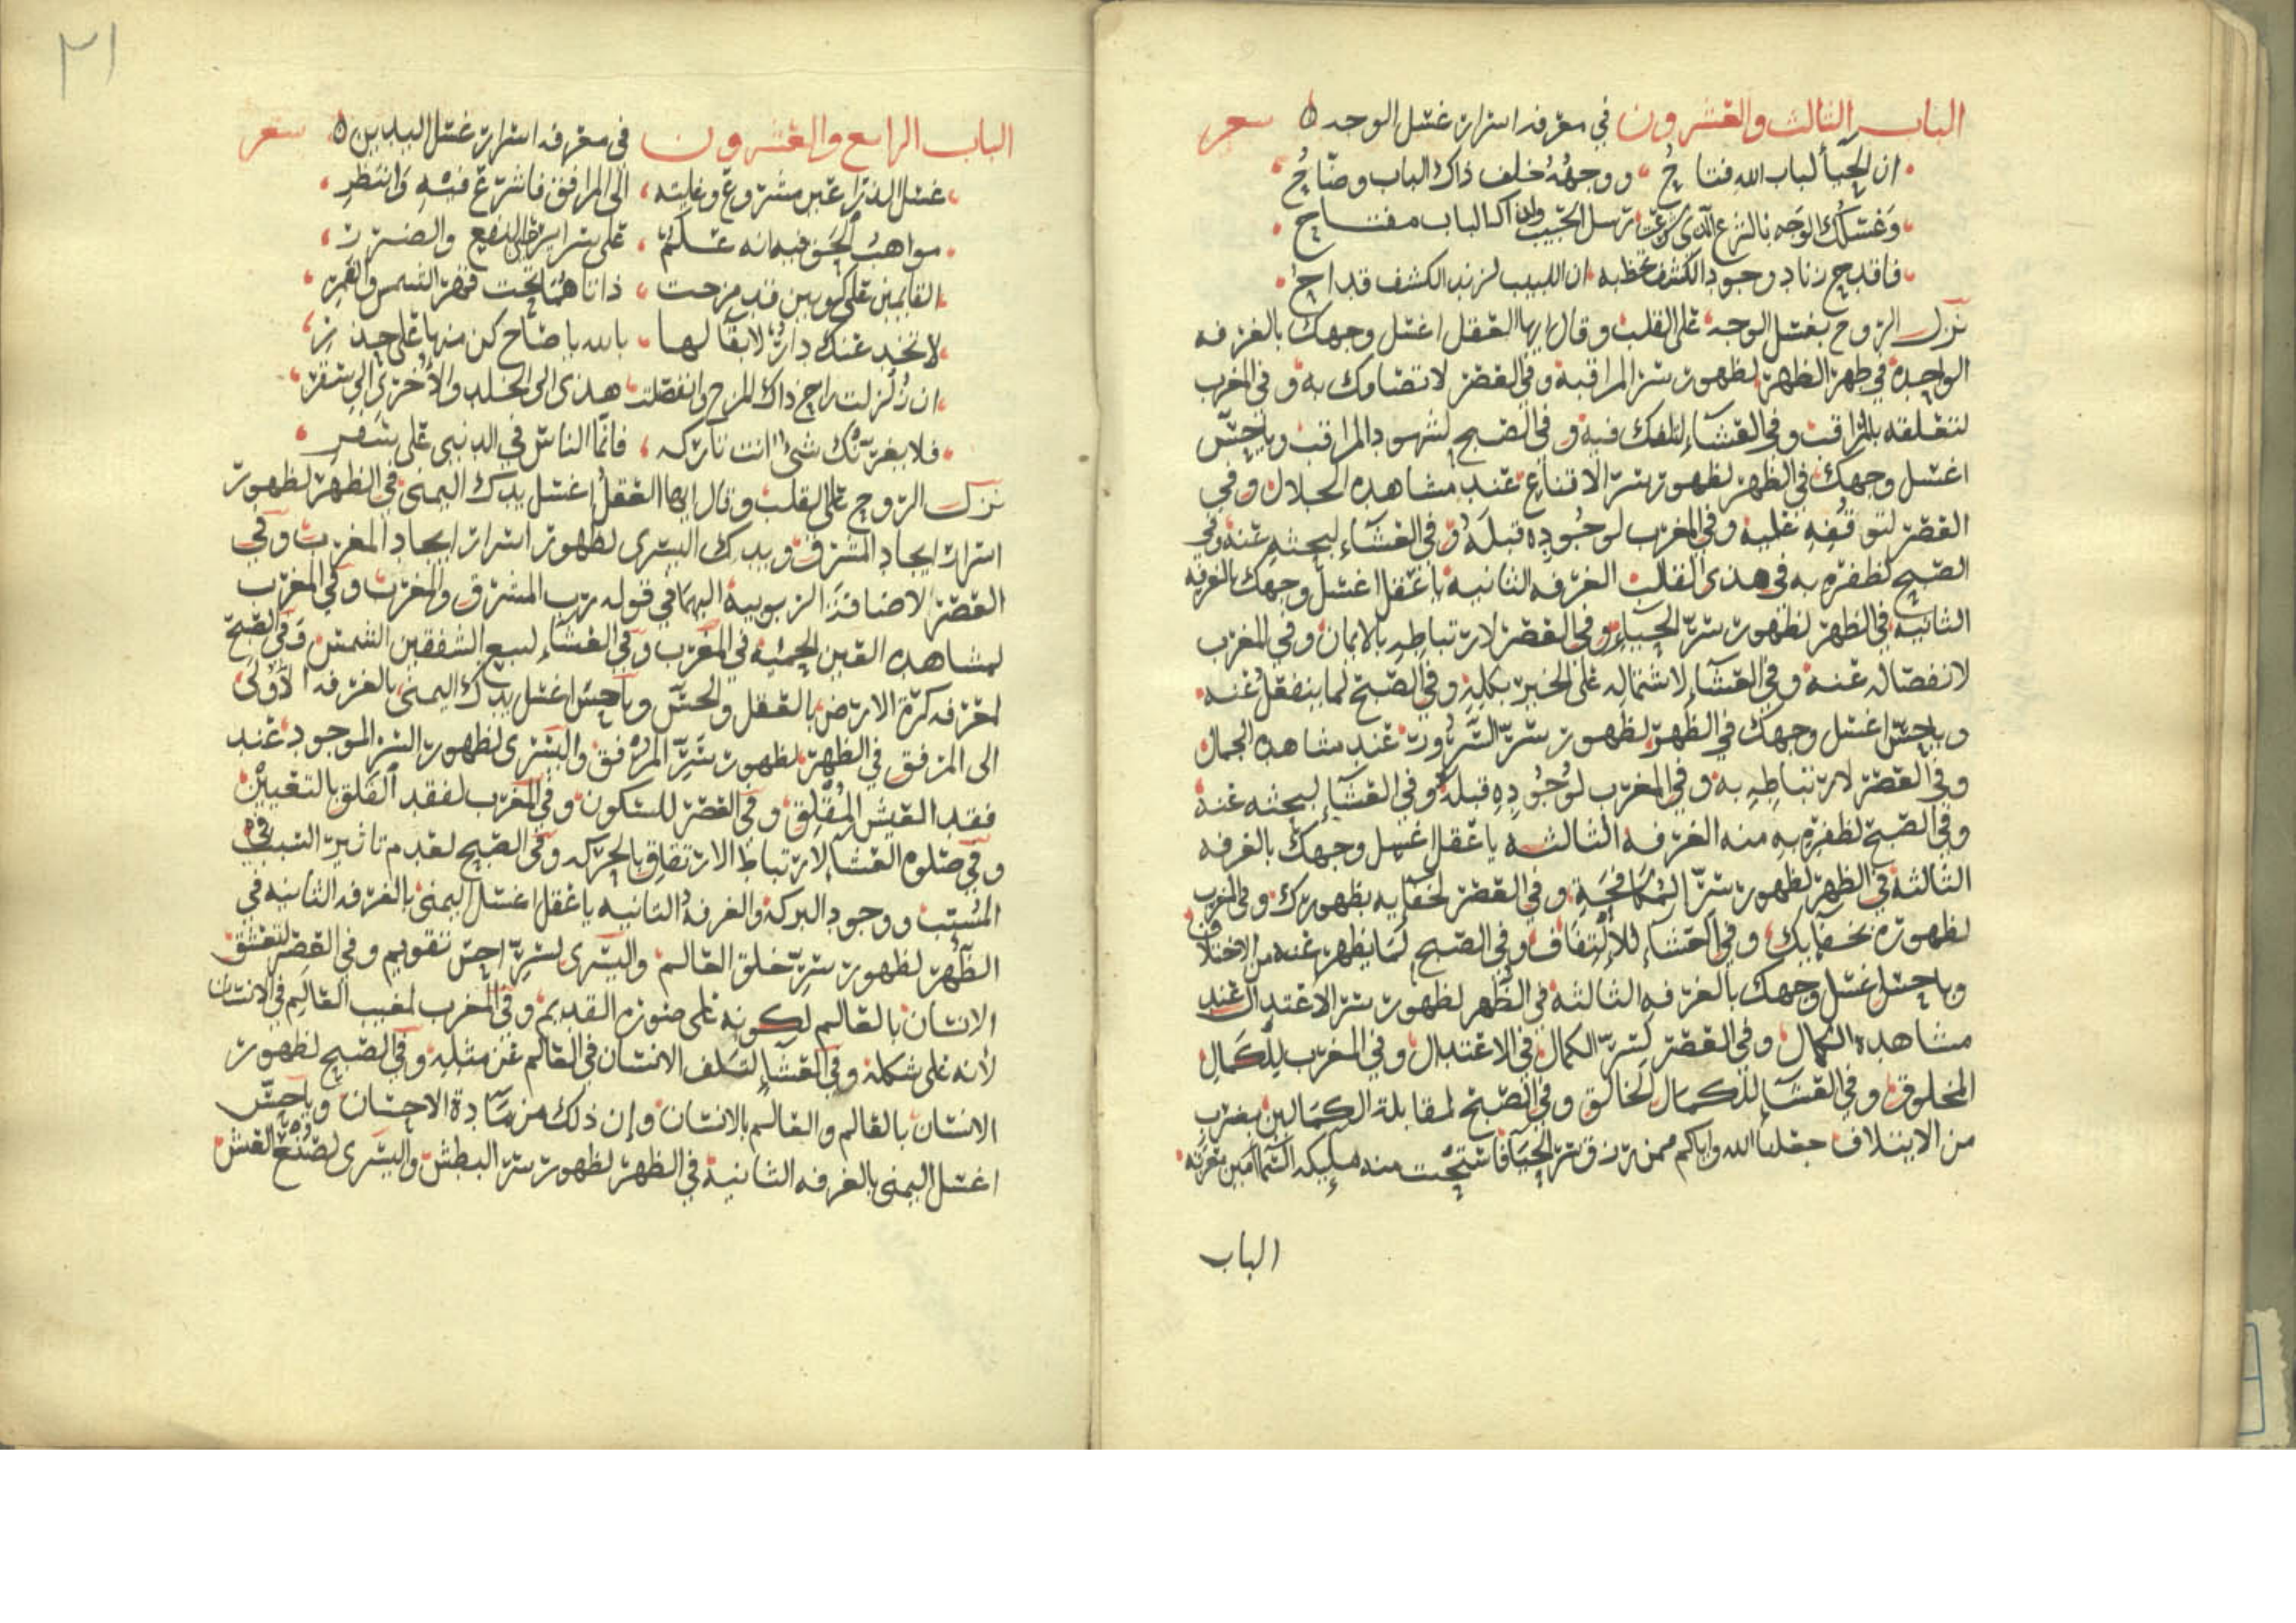 الباب الثالث والعشرون في معرفة اسرار غسل الوجه ه شعر
ان الحيا لباب الله فتاح ووجهه خلف ذاك الباب وضاح
وغسلك الوجه بالشرع الذي شرعت رسل الحبيب لذاك الباب مفتاح
فاقدح زناد وجود الكشف تحظ به ان اللبيب لزند الكشف قداح
نزل الروح بغسل الوجه على القلب وقال ايها العقل اغسل وجهك بالغرفه
الواحده في طهر الظهر لظهور سر المراقبة وفي العصر لاتصافك به وفي المغرب
لتعلقه بالمراقب وفي العشاء لتلفك فيه وفي الصبح لشهود المراقب وياحس
اغسل وجهك في الظهر لظهور سر الاقناع عند مشاهده الجلال وفي
العصر لتوقفه عليه وفي المغرب لوجوده قبله وفي العشاء لبحثه عنه وفي
الصبح لظفره به في هذى القلب الغرفه الثانيه ياعقل اغسل وجهك بالغرفه
الثانيه في الظهر لظهور سر الحياء وفي العصر لارتباطه بالايمان وفي المغرب
لانفصاله عنه وفي العشاء لاشتماله على الخير بكله وفي الصبح لما ينفعل عنه
وياحس اغسل وجهك في الظهر لظهور سر السرور عند مشاهده الجمال
وفي العصر لارتباطه به وفي المغرب لوجوده قبله وفي العشاء لبحثه عنه
وفي الصبح لظفره به منه الغرفه الثالثه ياعقل اغسل وجهك بالغرفه
الثالثة في الظهر لظهور سر المكافحة وفي العصر لخفايه بظهورك وفي المغرب
لظهوره بخفايك وفي العشاء للالتفاف وفي الصبح لما يظهر عنه من الاختلاف
وياحس اغسل وجهك بالغرفه الثالثه في الظهر لظهور سر الاعتدال عند
مشاهده الكمال وفي العصر لسر الكمال في الاعتدال وفي المغرب للكمال
المخلوق وفي العشا للكمال الخالق وفي الصبح لمقابلة الكمالين بضرب
من الايتلاف جعلنا الله واياكم ممن رزق سر الحيا فاستحت منه مليكه السما امين بعزته
الباب
٢١
الباب الرابع والعشرون في معرفه اسرار غسل اليدين ه شعر
غسل الذراعين مشروع وغايته الى المرافق فاشرع فيه وانتظر
مواهب الحق فيه انه علم على سراير النفع والضرر
القايمين على كونين قد مزجت ذاتاهما تحت قهر الشمس والقمر
لا تخدعنك دار لا بقا لها بالله يا صاح كن منها على حذر
ان زلزلت راح ذاك المزج وانفصلت هذى الى الخلد والاخرى الى سقر
فلا يغرنك شئ انت تاركه فانما الناس في الدنيى على سفر
نزل الروح على القلب وقال ايها العقل اغسل يدك اليمنى في الظهر لظهور
اسرار ايجاد المشرق ويدك اليسرى لظهور اسرار ايجاد المغرب وفي
العصر لاضافة الربوبية اليهما في قوله رب المشرق والمغرب وفي المغرب
لمشاهده العين الحمئة في المغرب وفي العشاء لسبع الشفقين الشمس وفي الصبح
لمعرفه كرة الارض بالعقل والحس وياحس اغسل يدك اليمنى بالغرفه الاولى
الى المرفق في الظهر لظهور سر المرفق واليسرى لظهور السر الموجود عند
فقد العيش المقلق وفي العصر للسكون وفي المغرب لفقد القلق بالتعيين
وفي صلوه العشا لارتباط الارتفاق بالحركه وفي الصبح لعدم تاثير السبب في
المسبب ووجود البركه والغرفه الثانيه ياعقل اغسل اليمنى بالغرفه الثانيه في
الظهر لظهور سر خلق العالم واليسرى لسر احسن تقويم وفي العصر لتعشق
الانسان بالعالم لكونه على صوره القديم وفي المغرب لمغيب العالم في الانسان
لانه على شكله وفي العشا لتلف الانسان في العالم عن مثله وفي الصبح لظهور
الانسان بالعالم والعالم بالانسان وان ذلك من مادة الاحسان وياحس
اغسل اليمنى بالغرفه الثانية في الظهر لظهور سر البطش واليسرى لصنع العش